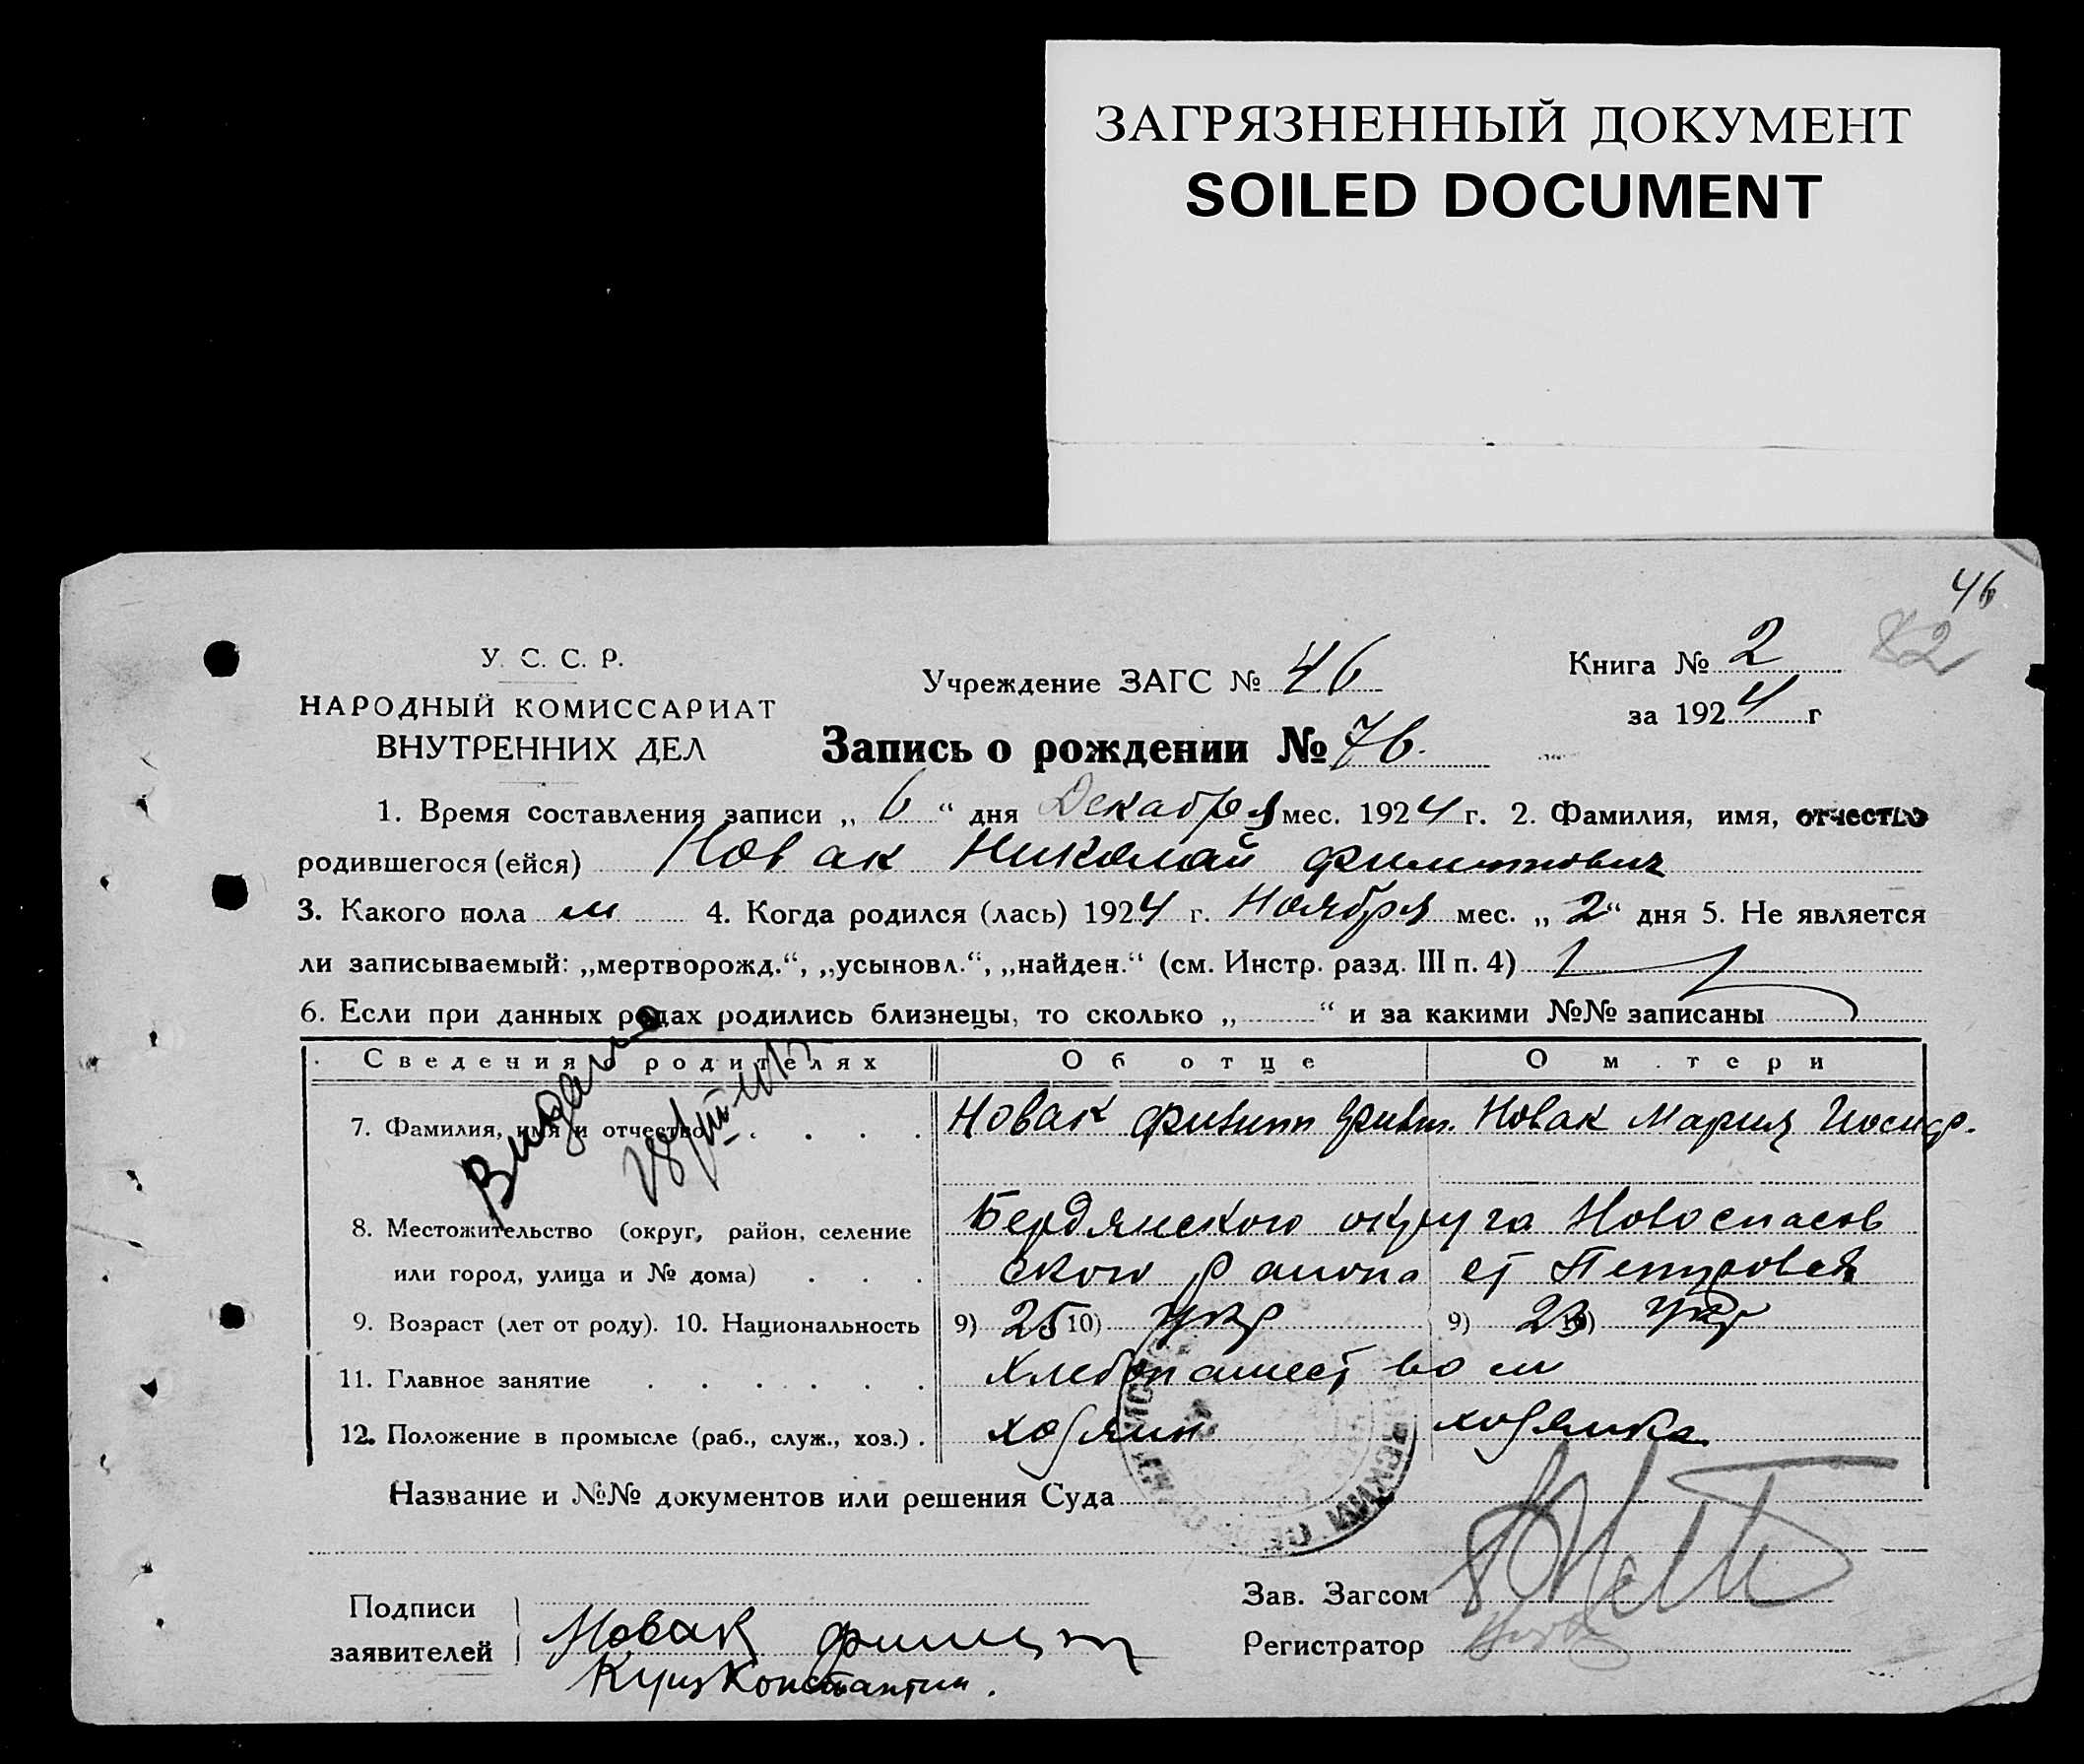 ЗАГРЯЗНЕННЫЙ ДОКУМЕНТ
SOILED DOCUMENT
46
82
У. С. С. Р.
НАРОДНЫЙ КОМИССАРИАТ
ВНУТРЕННИХ ДЕЛ
Учреждение ЗАГС № 46
Книга № 2
за 1924 г
Запись о рождении № 76.
1. Время составления записи „ 6 “ дня Декабря мес. 1924 г. 2. Фамилия, имя, отчество
родившегося (ейся) Новак Николай Филиппович
3. Какого пола м 4. Когда родился (лась) 1924 г. Ноября мес. „ 2 “ дня 5. Не является
ли записываемый: „мертворожд.“, „усыновл.“, „найден.“ (см. Инстр. разд. III п. 4)
6. Если при данных родах родились близнецы, то сколько „ “ и за какими №№ записаны
Сведения о родителях Об отце О м тери
7. Фамилия, имя и отчество Новак Филипп Филип. Новак Мария Иосиф.
8. Местожительство (округ, район, селение Бердянского округа Новоспасов
или город, улица и № дома) ского района с Петровка
9. Возраст (лет от роду). 10. Национальность 9) 25 10) укр 9) 23 10) укр
11. Главное занятие Хлебопашеством
12. Положение в промысле (раб., служ., хоз.) хозяин хозяйка
Название и №№ документов или решения Суда
Подписи
заявителей
Новак Филипп
Куц Константин.
Зав. Загсом
Регистратор
Видано